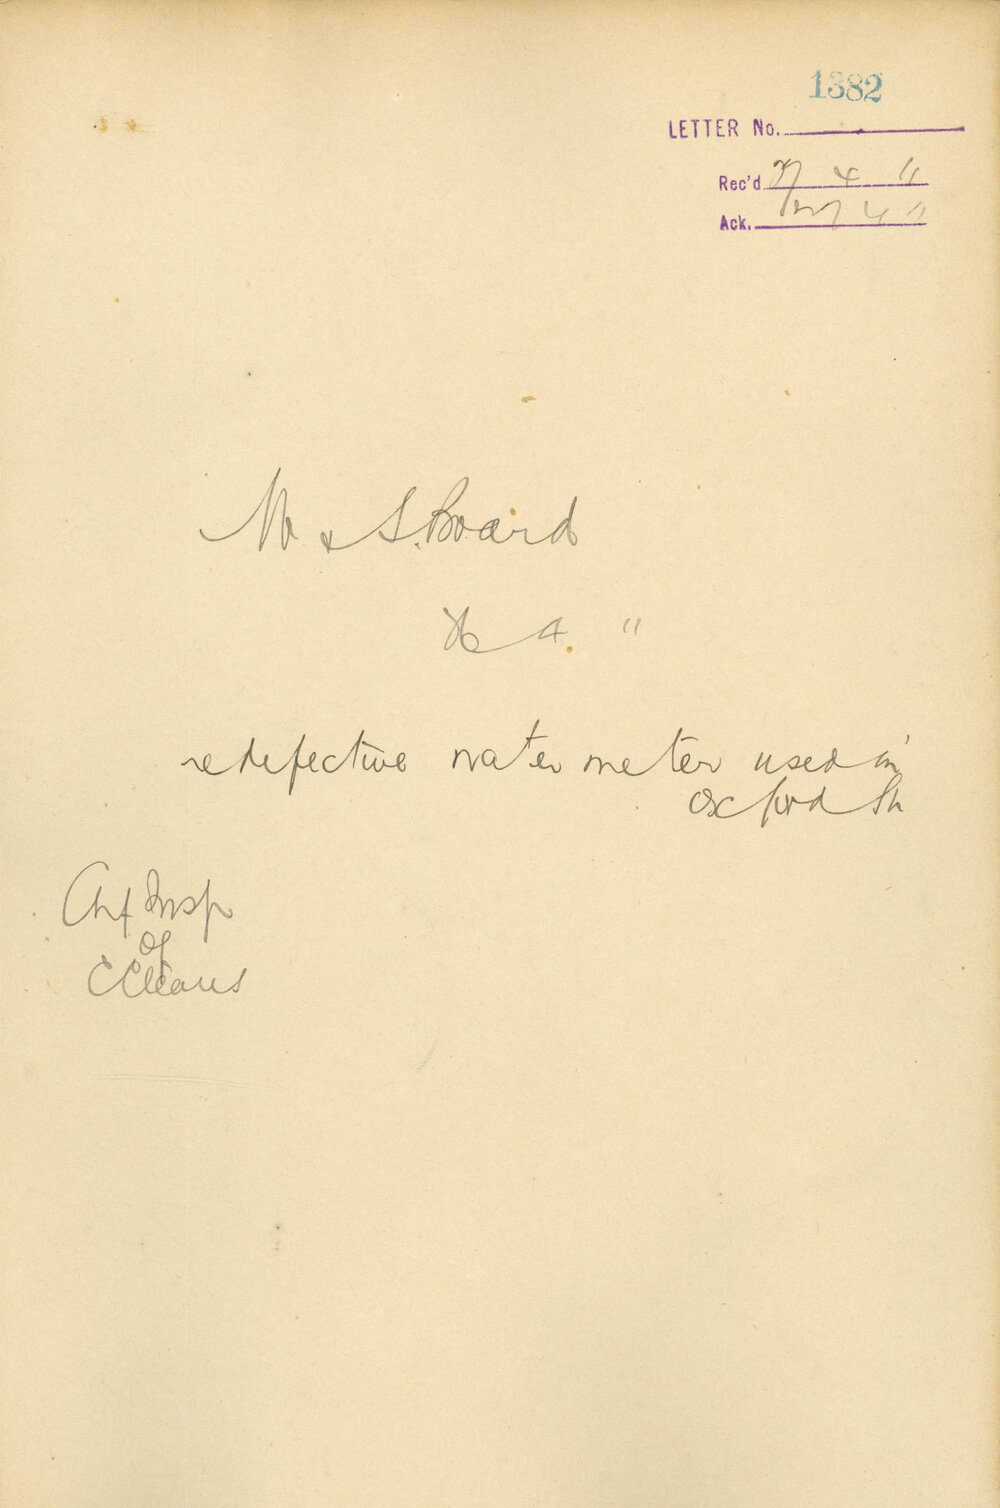 1382
LETTER No.
Rec'd 27 4 11
Ack. 27 4 11
W & S. Board
26 4. 11
re defective water meter used in
Oxford St
Chf Insp
of
C Cleans